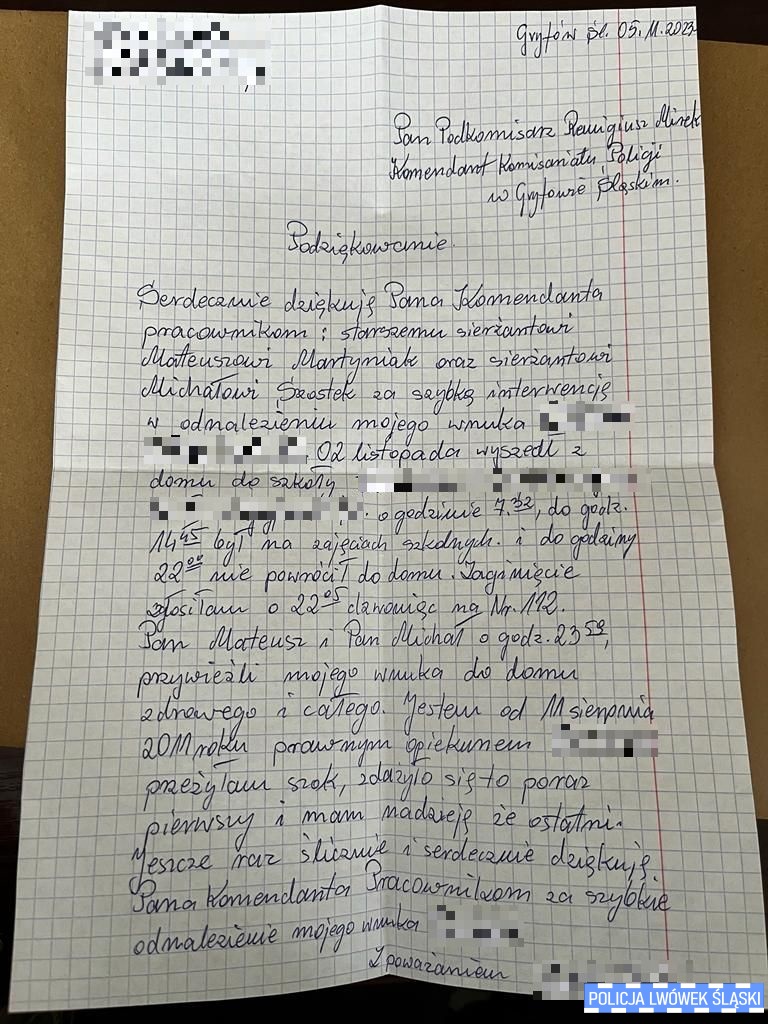 Gryfów Śl. 05.11.2023
Pan Podkomisarz Remigiusz Mirek
Komendant Komisariatu Policji
w Gryfowie Śląskim.
Podziękowanie.
Serdecznie dziękuję Pana Komendanta
pracownikom: starszemu sierżantowi
Mateuszowi Martyniak oraz sierżantowi
Michałowi Szostek za szybką interwencję
w odnalezieniu mojego wnuka
02 listopada wyszedł z
domu do szkoły
o godzinie 7.32, do godz.
14 45 był na zajęciach szkolnych. i do godziny
22 00 nie powrócił do domu. Zaginięcie
zgłosiłam o 22 05 dzwoniąc na Nr. 112.
Pan Mateusz i Pan Michał o godz. 23 59,
przywieźli mojego wnuka do domu
zdrowego i całego. Jestem od 11 sierpnia
2011 roku prawnym opiekunem
przeżyłam szok, zdażyło się to poraz
pierwszy i mam nadzieję że ostatni.
Jeszcze raz ślicznie i serdecznie dziękuję.
Pana Komendanta Pracownikom za szybkie
odnalezienie mojego wnuka
Z poważaniem
POLICJA LWÓWEK ŚLĄSKI